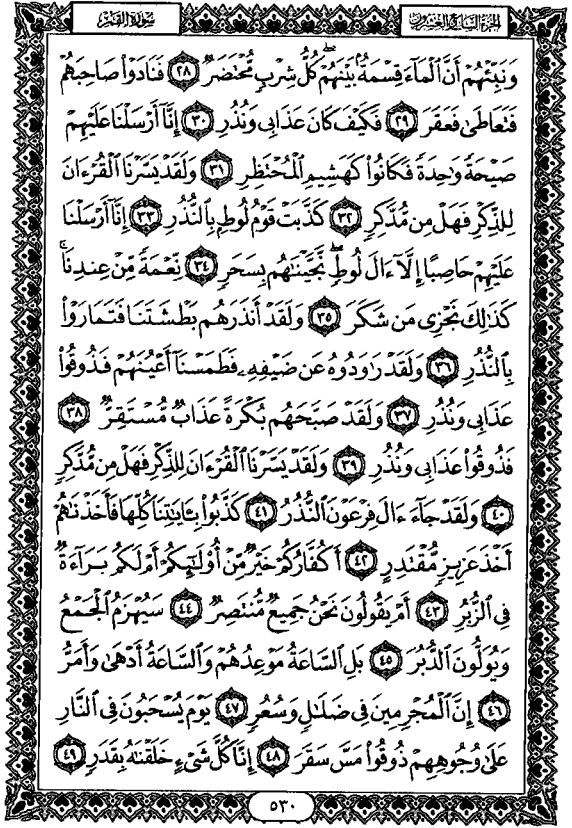 سورة القمر
الجزء السابع والعشرون
وَنَبِّئْهُمْ أَنَّ ٱلْمَآءَ قِسْمَةُۢ بَيْنَهُمْ ۖ كُلُّ شِرْبٍ مُّحْتَضَرٌ ﴿٢٨﴾ فَنَادَوْا۟ صَاحِبَهُمْ
فَتَعَاطَىٰ فَعَقَرَ ﴿٢٩﴾ فَكَيْفَ كَانَ عَذَابِى وَنُذُرِ ﴿٣٠﴾ إِنَّآ أَرْسَلْنَا عَلَيْهِمْ
صَيْحَةً وَٰحِدَةً فَكَانُوا۟ كَهَشِيمِ ٱلْمُحْتَظِرِ ﴿٣١﴾ وَلَقَدْ يَسَّرْنَا ٱلْقُرْءَانَ
لِلذِّكْرِ فَهَلْ مِن مُّدَّكِرٍ ﴿٣٢﴾ كَذَّبَتْ قَوْمُ لُوطٍۭ بِٱلنُّذُرِ ﴿٣٣﴾ إِنَّآ أَرْسَلْنَا
عَلَيْهِمْ حَاصِبًا إِلَّآ ءَالَ لُوطٍ ۖ نَّجَّيْنَٰهُم بِسَحَرٍ ﴿٣٤﴾ نِّعْمَةً مِّنْ عِندِنَا ۚ
كَذَٰلِكَ نَجْزِى مَن شَكَرَ ﴿٣٥﴾ وَلَقَدْ أَنذَرَهُم بَطْشَتَنَا فَتَمَارَوْا۟
بِٱلنُّذُرِ ﴿٣٦﴾ وَلَقَدْ رَٰوَدُوهُ عَن ضَيْفِهِۦ فَطَمَسْنَآ أَعْيُنَهُمْ فَذُوقُوا۟
عَذَابِى وَنُذُرِ ﴿٣٧﴾ وَلَقَدْ صَبَّحَهُم بُكْرَةً عَذَابٌ مُّسْتَقِرٌّ ﴿٣٨﴾
فَذُوقُوا۟ عَذَابِى وَنُذُرِ ﴿٣٩﴾ وَلَقَدْ يَسَّرْنَا ٱلْقُرْءَانَ لِلذِّكْرِ فَهَلْ مِن مُّدَّكِرٍ
﴿٤٠﴾ وَلَقَدْ جَآءَ ءَالَ فِرْعَوْنَ ٱلنُّذُرُ ﴿٤١﴾ كَذَّبُوا۟ بِـَٔايَٰتِنَا كُلِّهَا فَأَخَذْنَٰهُمْ
أَخْذَ عَزِيزٍ مُّقْتَدِرٍ ﴿٤٢﴾ أَكُفَّارُكُمْ خَيْرٌ مِّنْ أُو۟لَٰٓئِكُمْ أَمْ لَكُم بَرَآءَةٌ
فِى ٱلزُّبُرِ ﴿٤٣﴾ أَمْ يَقُولُونَ نَحْنُ جَمِيعٌ مُّنتَصِرٌ ﴿٤٤﴾ سَيُهْزَمُ ٱلْجَمْعُ
وَيُوَلُّونَ ٱلدُّبُرَ ﴿٤٥﴾ بَلِ ٱلسَّاعَةُ مَوْعِدُهُمْ وَٱلسَّاعَةُ أَدْهَىٰ وَأَمَرُّ
﴿٤٦﴾ إِنَّ ٱلْمُجْرِمِينَ فِى ضَلَٰلٍ وَسُعُرٍ ﴿٤٧﴾ يَوْمَ يُسْحَبُونَ فِى ٱلنَّارِ
عَلَىٰ وُجُوهِهِمْ ذُوقُوا۟ مَسَّ سَقَرَ ﴿٤٨﴾ إِنَّا كُلَّ شَىْءٍ خَلَقْنَٰهُ بِقَدَرٍ ﴿٤٩﴾
٥٣٠